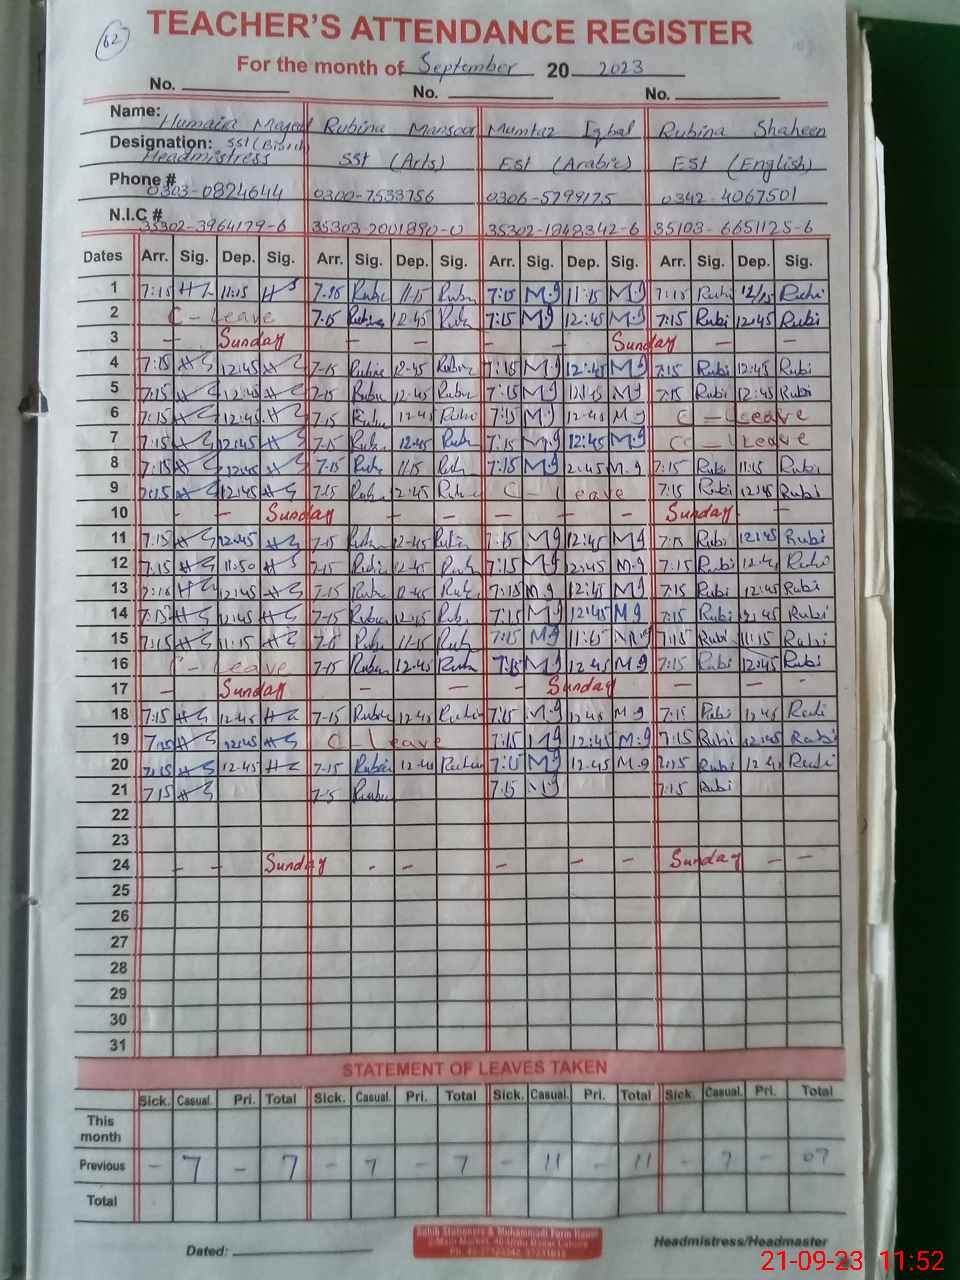 62
TEACHER'S ATTENDANCE REGISTER
For the month of September 20 2023
No. No. No.
Name: Humaira Majeed Rubina Mansoor Mumtaz Iqbal Rubina Shaheen
Designation: SSt (Bio.ch)
Headmistress SSt (Arts) ESt (Arabic) ESt (English)
Phone # 0303-0824644 0300-7533756 0306-5799175 0342-4067501
N.I.C # 35302-3964179-6 35303-2001890-0 35302-1948342-6 35103-6651125-6
Dates Arr. Sig. Dep. Sig. Arr. Sig. Dep. Sig. Arr. Sig. Dep. Sig. Arr. Sig. Dep. Sig.
1 7:15 11:15 7-15 Rubi 11-15 Rubi 7:15 M.9 11:15 M.9 7:15 Rubi 12/15 Rubi
2 C - Leave 7-15 Rubina 12-45 Rubi 7:15 M.9 12:45 M.9 7:15 Rubi 12:45 Rubi
3 - Sunday - - - - Sunday - -
4 7:15 12:45 7-15 Rubina 12-45 Rubina 7:15 M.9 12:45 M.9 7:15 Rubi 12:45 Rubi
5 7:15 12:45 7-15 Rubi 12-45 Rubi 7:15 M.9 12:45 M.9 7:15 Rubi 12:45 Rubi
6 7:15 12:45 7-15 Rubi 12-45 Rubi 7:15 M.9 12:45 M.9 C - Leave
7 7:15 12:45 7-15 Rubi 12-45 Rubi 7:15 M.9 12:45 M.9 C - Leave
8 7:15 12:45 7-15 Rubi 11-15 Rubi 7:15 M.9 2:45 M.9 7:15 Rubi 11:15 Rubi
9 7:15 12:45 7-15 Rubi 12-45 Rubi C - Leave 7:15 Rubi 12:45 Rubi
10 - - Sunday - - - - - Sunday -
11 7:15 12:45 7-15 Rubi 12-45 Rubi 7:15 M.9 12:45 M.9 7:15 Rubi 12:45 Rubi
12 7:15 11:50 7-15 Rubi 12-45 Rubi 7:15 M.9 12:45 M.9 7:15 Rubi 12:45 Rubi
13 7:15 12:45 7-15 Rubi 12-45 Rubi 7:15 M.9 12:45 M.9 7:15 Rubi 12:45 Rubi
14 7:15 12:45 7-15 Rubi 12-45 Rubi 7:15 M.9 12:45 M.9 7:15 Rubi 12:45 Rubi
15 7:15 11:15 7-15 Rubi 11-15 Rubi 7:15 M.9 11:15 M.9 7:15 Rubi 11:15 Rubi
16 C - Leave 7-15 Rubi 12.45 Rubi 7:15 M.9 12.45 M.9 7:15 Rubi 12:45 Rubi
17 - Sunday - - - Sunday - - -
18 7:15 12:45 7-15 Rubi 12:45 Rubi 7:15 M.9 12:45 M.9 7:15 Rubi 12:45 Rubi
19 7:15 12:45 C - Leave 7:15 M.9 12:45 M.9 7:15 Rubi 12:45 Rubi
20 7:15 12:45 7-15 Rubi 12:45 Rubi 7:15 M.9 12:45 M.9 7:15 Rubi 12:45 Rubi
21 7:15 7-15 Rubi 7:15 M.9 7:15 Rubi
22
23
24 - - Sunday - - - - - Sunday - -
25
26
27
28
29
30
31
STATEMENT OF LEAVES TAKEN
Sick. Casual. Pri. Total Sick. Casual. Pri. Total Sick. Casual. Pri. Total Sick. Casual. Pri. Total
This month
Previous - 7 - 7 - 7 - 7 - 11 - 11 - 7 - 07
Total
Dated: Headmistress/Headmaster
21-09-23 11:52